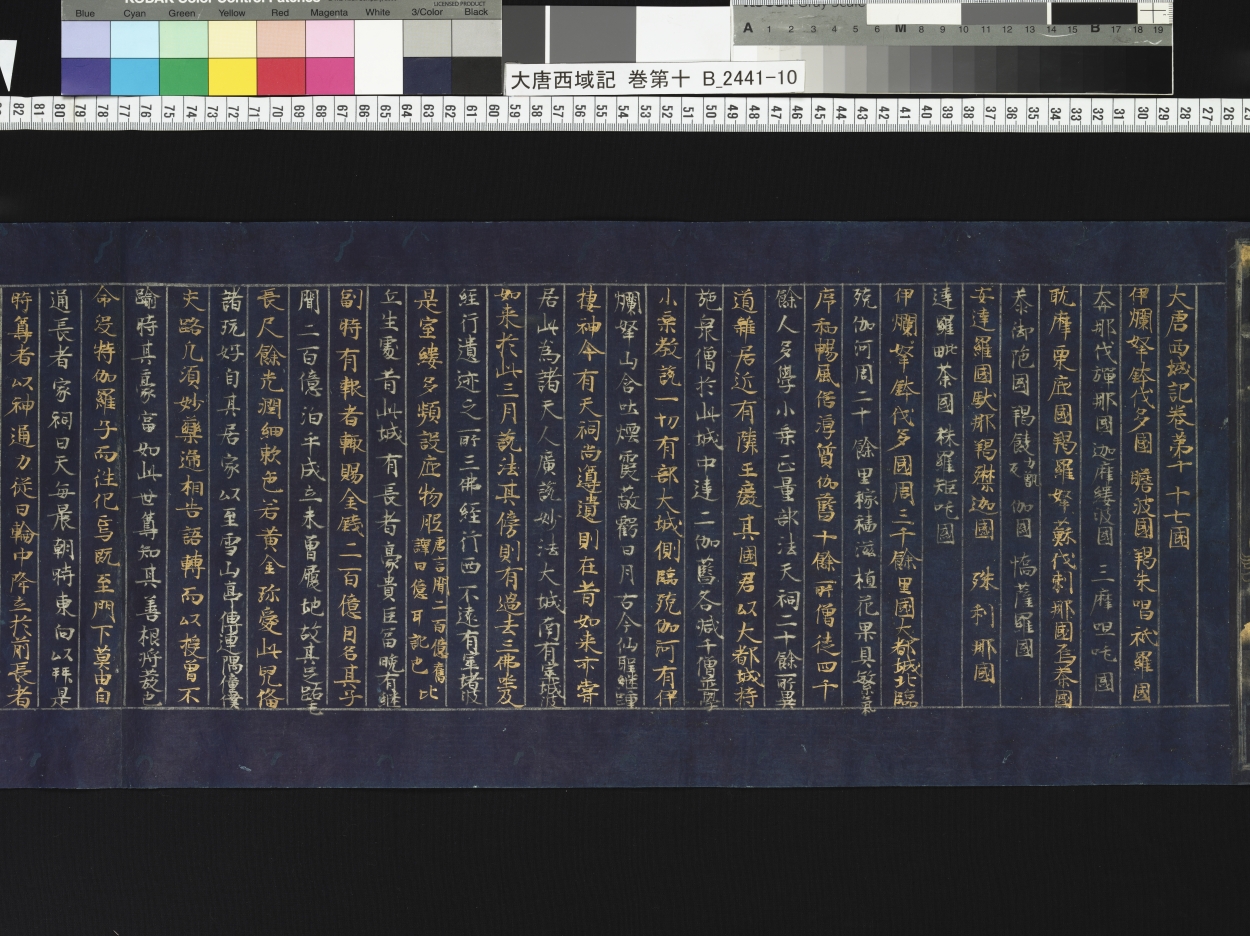 KODAK Color Control Patches
LICENSED PRODUCT
Blue Cyan Green Yellow Red Magenta White 3/Color Black
A 1 2 3 4 5 6 M 8 9 10 11 12 13 14 15 B 17 18 19
大唐西域記 巻第十 B_2441-10
82 81 80 79 78 77 76 75 74 73 72 71 70 69 68 67 66 65 64 63 62 61 60 59 58 57 56 55 54 53 52 51 50 49 48 47 46 45 44 43 42 41 40 39 38 37 36 35 34 33 32 31 30 29 28 27 26
大唐西域記卷第十 十七國
伊爛拏鉢伐多國 瞻波國 羯朱唱祇羅國
奔那伐彈那國 迦摩縷波國 三摩呾吒國
耽摩栗底國 羯羅拏蘇伐剌那國 烏荼國
恭御陁國 羯𩜁 伽國 憍薩羅國
安達羅國 馱那羯磔迦國 珠利耶國
達羅毗荼國 秣羅矩吒國
伊爛拏鉢伐多國周三千餘里國大都城北臨
殑伽河周二十餘里稼穡滋植花果具繁氣
序和暢風俗淳質伽藍十餘所僧徒四千
餘人多學小乘正量部法天祠二十餘所異
道雜居近有隣王廢其國君以大都城持
施衆僧於此城中建二伽藍各減千僧並學
小乘教說一切有部大城側臨殑伽河有伊
爛拏山含吐煙霞蔽虧日月古今仙聖繼踵
棲神今有天祠尚遵遺則在昔如來亦甞
居此為諸天人廣說妙法大城南有窣堵波
如來於此三月說法其傍則有過去三佛㘴及
經行遺迹之所三佛經行西不遠有窣堵波
是室縷多頻設底物股 唐言聞二百億舊譯曰億耳訛也 比
丘生處昔此城有長者豪貴巨富晚有繼
副時有報者輙賜金錢二百億因名其子
聞二百億洎乎成立未曾履地故其足跖毛
長尺餘光潤細軟色若黃金珎愛此兒俻
諸玩好自其居家以至雪山亭傳連隅僮僕
夾路凡須妙藥遞相告語轉而以授曾不
踰時其豪富如此世尊知其善根將發也
命没特伽羅子而往化焉既至門下莫由自
通長者家祠日天每晨朝時東向以拜是
時尊者以神通力從日輪中降立於前長者